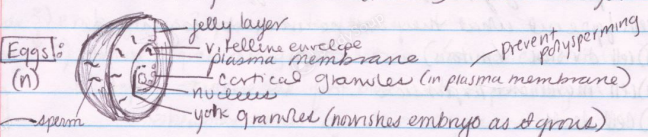 jelly layer
Eggs:
vitelline envelope
prevent polysperming
plasma membrane
(n)
cortical granules (in plasma membrane)
nucleus
sperm
yolk granules (nourishes embryo as it grows)